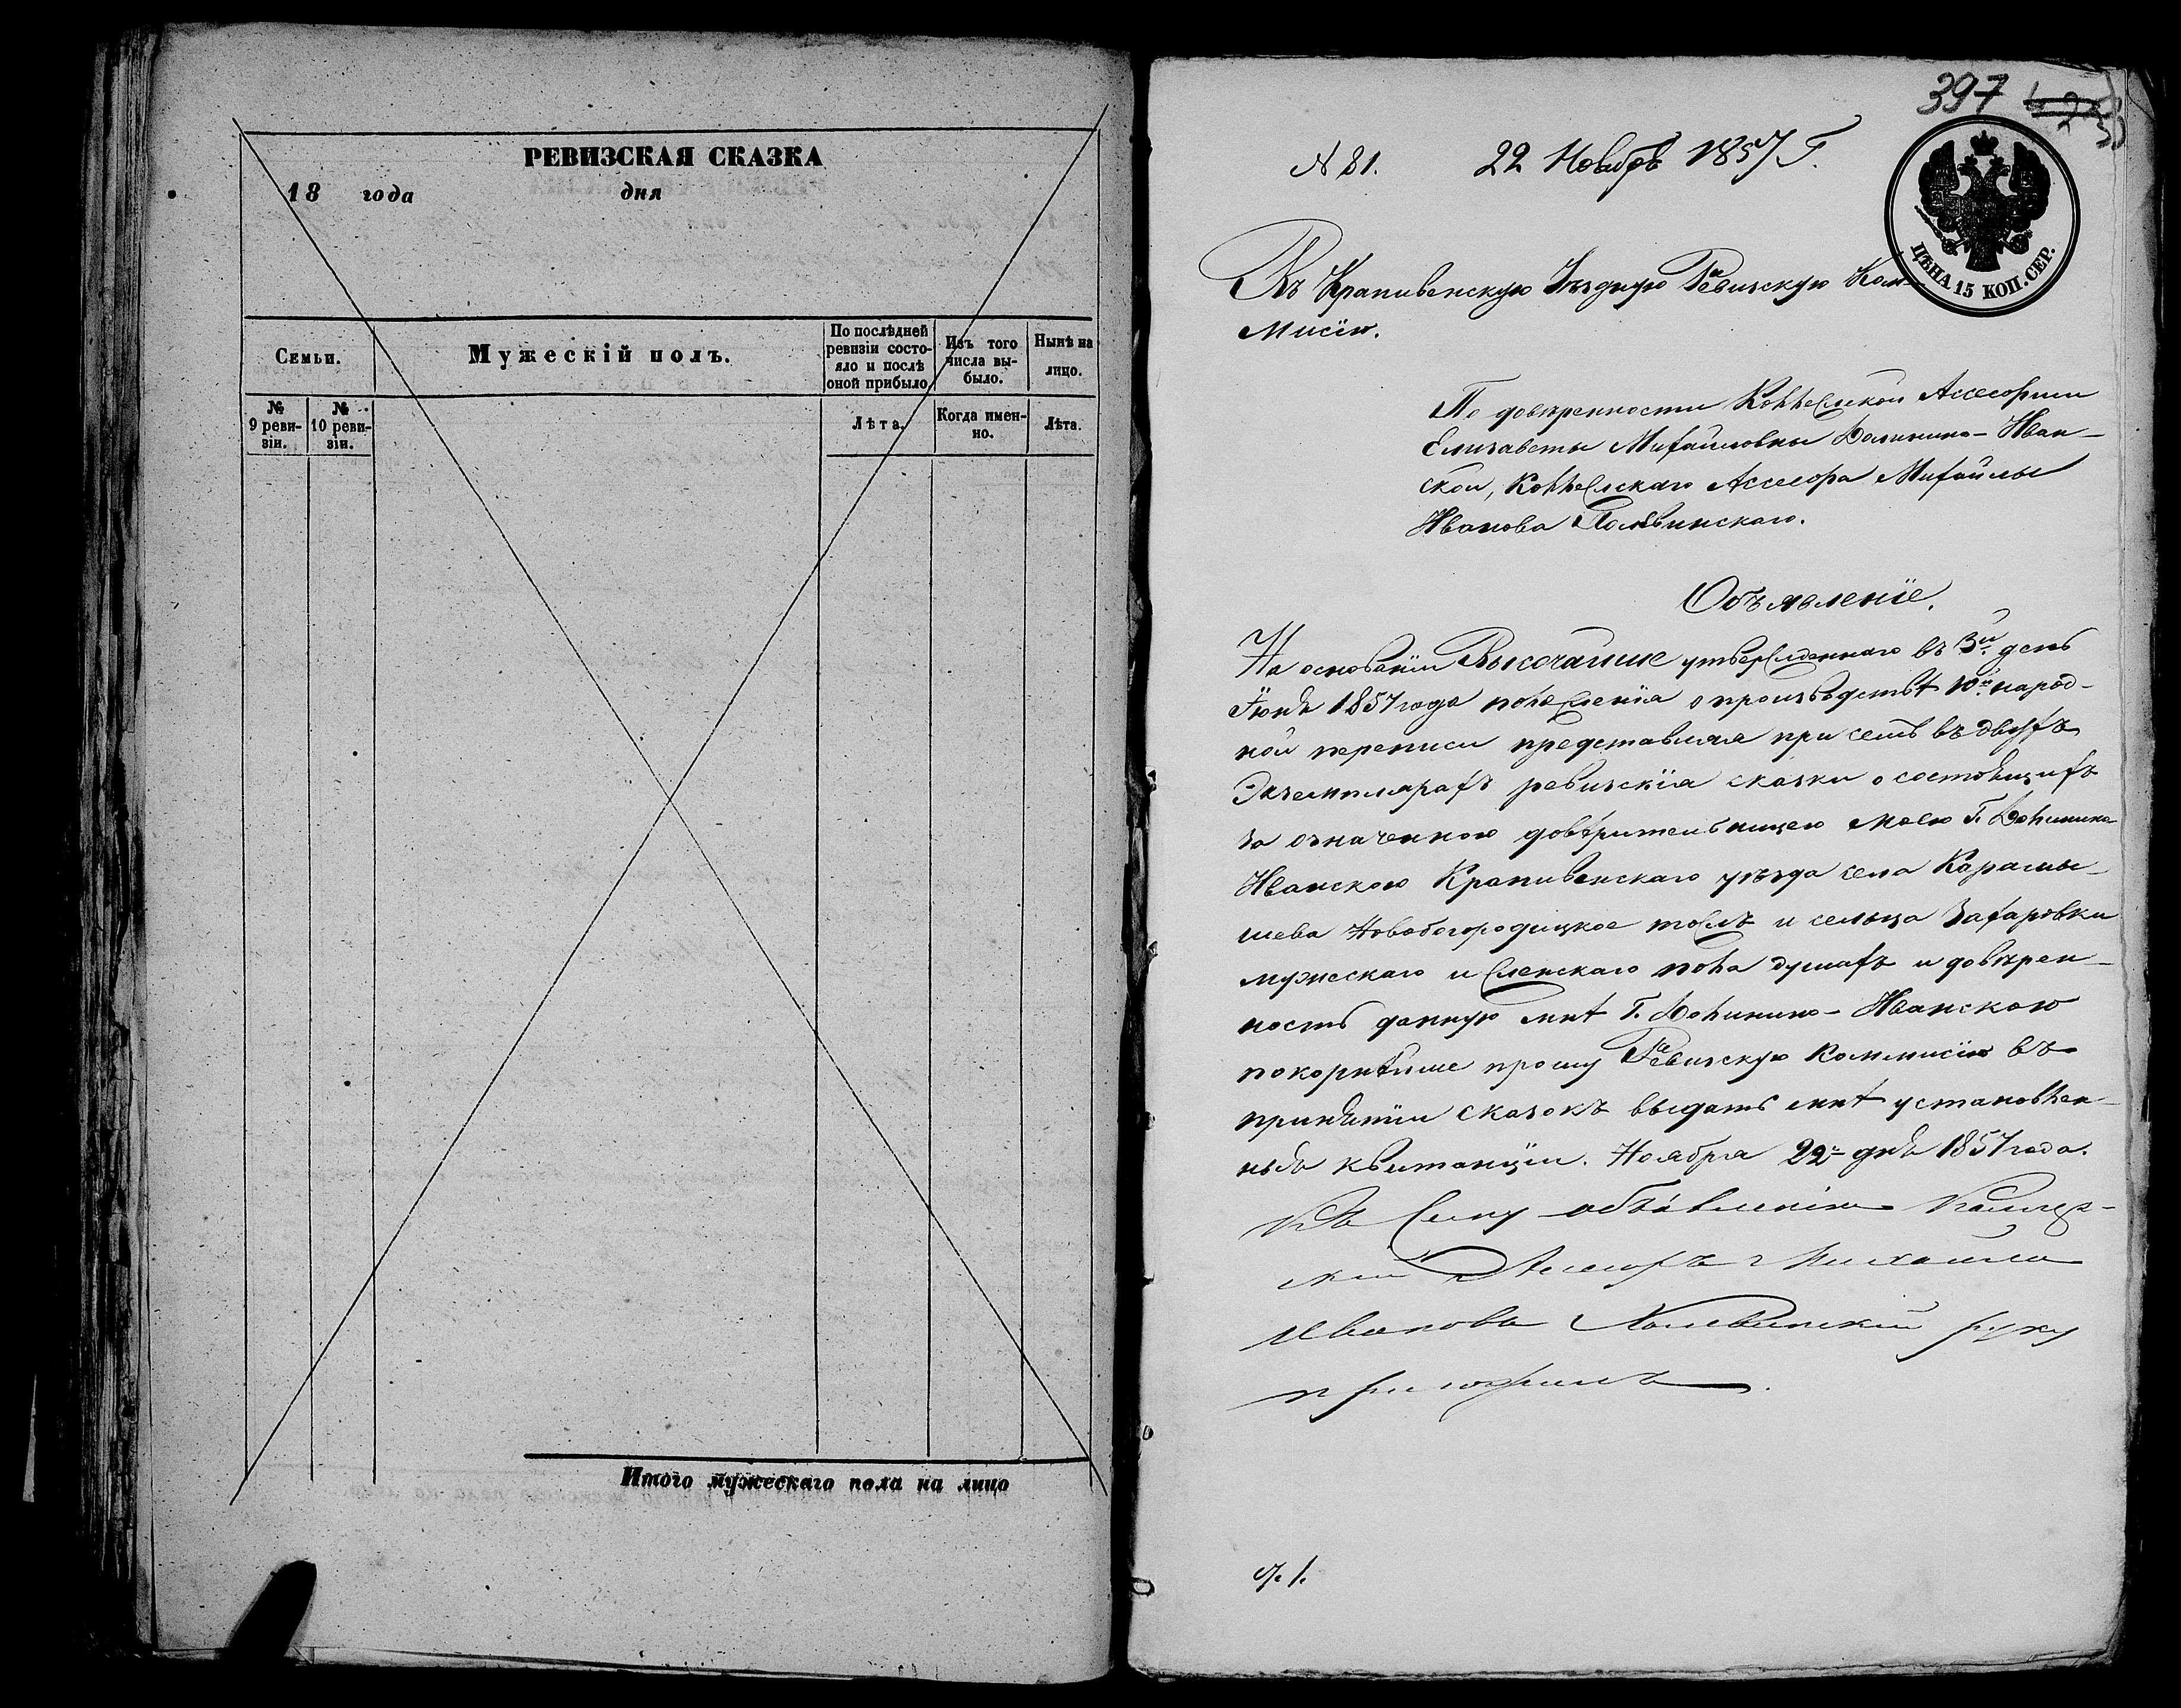 РЕВИЗСКАЯ СКАЗКА
18 года дня
Семьи.
Мужескій полъ.
По послѣдней
ревизіи состо-
яло и послѣ
оной прибыло.
Изъ того
числа вы-
было.
Нынѣ на
лицо.
№
9 реви-
зіи.
№
10 реви-
зіи.
Лѣта.
Когда имен-
но.
Лѣта.
Итого мужескаго пола на лицо
397
№ 81. 22 Ноября 1857 Г.
ЦѢНА 15 КОП. СЕР.
Въ Крапивенскую Уѣздную Ревизскую Ком-
мисію.
По довѣренности Коллежской Ассесорши
Елизаветы Михайловны Долинино-Иван-
ской, Коллежскаго Ассесора Михайлы
Иванова
Объявленіе.
На основаніи Высочайше утвержденнаго въ 3й день
Іюня 1857 года положенія о произвѣдствѣ 10й народ-
ной переписи представляя при семъ въ двухъ
Экземплярахъ ревизскія сказки о состоящихъ
за означенною довѣрительницею моею Г. Долинино
Иванскою Крапивенскаго уѣзда села Карамы-
шева Новобогородицкое тожъ и сельца Захаровки
мужескаго и женскаго пола душахъ и довѣрен-
ность данную мнѣ Г. Долинино-Иванскою
покорнѣйше прошу Ревизскую Коммисію въ
принятіи сказокъ выдать мнѣ установлен-
ныя квитанціи. Ноября 22го дня 1857 года.
Къ сему объявленію Коллеж-
скій Ассесоръ Михайла
Ивановъ руку
приложилъ.